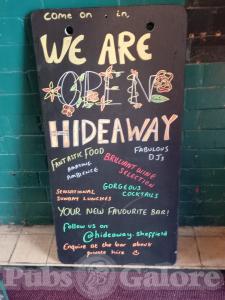 come on in,
WE ARE
OPEN
HIDEAWAY
FANTASTIC FOOD
FABULOUS
DJs
AMAZING
AMBIENCE
BRILLIANT WINE
SELECTION
SENSATIONAL
SUNDAY LUNCHES
GORGEOUS
COCKTAILS
YOUR NEW FAVOURITE BAR!
Follow us on
@hideaway.sheffield
Enquire at the bar about
private hire
Pubs Galore